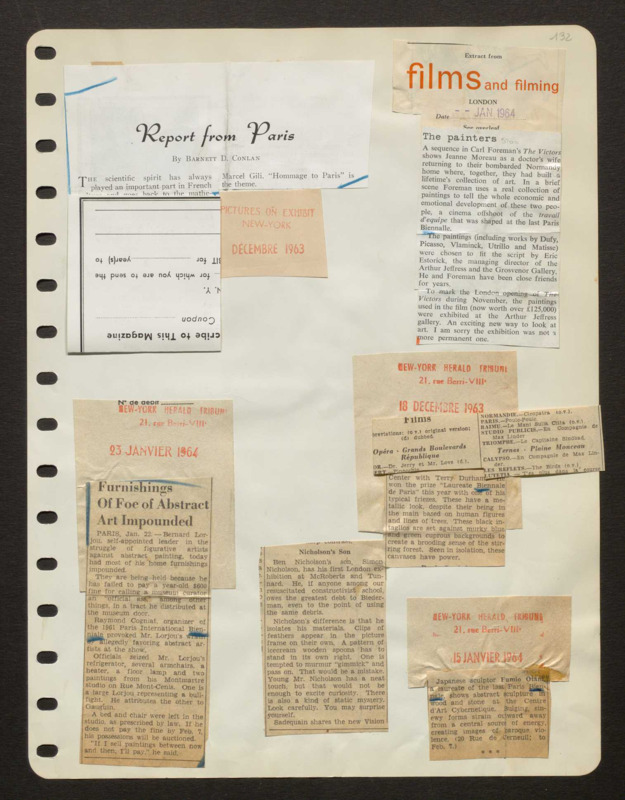 132
Report from Paris
By Barnett D. Conlan
The scientific spirit has always
played an important part in French
Marcel Gili. "Hommage to Paris" is
the theme.
PICTURES ON EXHIBIT
NEW-YORK
DECEMBRE 1963
year(s) to
for
for which you are to send the
Coupon
cribe to This Magazine
Extract from
films and filming
LONDON
Date JAN. 1964
See overleaf
The painters
A sequence in Carl Foreman's The Victors
shows Jeanne Moreau as a doctor's wife
returning to their bombarded Normandy
home where, together, they had built a
lifetime's collection of art. In a brief
scene Foreman uses a real collection of
paintings to tell the whole economic and
emotional development of these two peo-
ple, a cinema offshoot of the travail
d'equipe that was shaped at the last Paris
Biennalle.
The paintings (including works by Dufy,
Picasso, Vlaminck, Utrillo and Matisse)
were chosen to fit the script by Eric
Estorick, the managing director of the
Arthur Jeffress and the Grosvenor Gallery.
He and Foreman have been close friends
for years.
To mark the London opening of The
Victors during November, the paintings
used in the film (now worth over £125,000)
were exhibited at the Arthur Jeffress
gallery. An exciting new way to look at
art. I am sorry the exhibition was not a
more permanent one.
NEW-YORK HERALD TRIBUNE
21, rue Berri-VIIIe
18 DECEMBRE 1963
Films
(o.v.) original version;
dubbed.
Opéra - Grands Boulevards
République
Be Jerry et Mr. Love (d.).
NORMANDIE.—Cleopatra (o.v.).
PARIS.—
RAIMU.—
STUDIO PUBLICIS.—En Compagnie de
Max Linder
TRIOMPHE.—Le Capitaine Sindbad.
Ternes - Plaine Monceau
CALYPSO.—En Compagnie de Max Lin-
der.
LES REFLETS.—The Birds (o.v.).
Center with Terry Durham, who
won the prize "Laureate Biennale
de Paris" this year with one of his
typical friezes. These have a me-
tallic look, despite their being in
the main based on human figures
and lines of trees. These black in-
taglios are set against murky blue
and green cuprous backgrounds to
create a brooding sense of the stir-
ring forest. Seen in isolation, these
canvases have power.
NEW-YORK HERALD TRIBUNE
21, rue Berri-VIIIe
23 JANVIER 1964
Furnishings
Of Foe of Abstract
Art Impounded
PARIS, Jan. 22.—Bernard Lor-
jou, self-appointed leader in the
struggle of figurative artists
against abstract painting, today
had most of his home furnishings
impounded.
They are being held because he
has failed to pay a year-old $600
fine for calling a museum curator
an official ass, among other
things, in a tract he distributed at
the museum door.
Raymond Cogniat, organizer of
the 1961 Paris International Bien-
niale provoked Mr. Lorjou's
by allegedly favoring abstract ar-
tists at the show.
Officials seized Mr. Lorjou's
refrigerator, several armchairs, a
heater, a floor lamp and two
paintings from his Montmartre
studio on Rue Mont-Cenis. One is
a large Lorjou representing a bull-
fight. He attributes the other to
Gauguin.
A bed and chair were left in the
studio, as prescribed by law. If he
does not pay the fine by Feb. 7,
his possessions will be auctioned.
"If I sell paintings between now
and then, I'll pay," he said.
Nicholson's Son
Ben Nicholson's son, Simon
Nicholson, has his first London ex-
hibition at McRoberts and Tun-
nard. He, if anyone among our
resuscitated constructivist school,
owes the greatest debt to Bieder-
man, even to the point of using
the same debris.
Nicholson's difference is that he
isolates his materials. Clips of
feathers appear in the picture
frame on their own. A pattern of
icecream wooden spoons has to
stand in its own right. One is
tempted to murmur "gimmick" and
pass on. That would be a mistake.
Young Mr. Nicholson has a neat
touch, but that would not be
enough to excite curiosity. There
is also a kind of static mystery.
Look carefully. You may surprise
yourself.
Sadequain shares the new Vision
NEW-YORK HERALD TRIBUNE
21, rue Berri-VIIIe
15 JANVIER 1964
Japanese sculptor Fumio Otani,
a laureate of the last Paris
shows abstract sculpture in
wood and stone at the Centre
d'Art Cybernetique. Bulging, sin-
ewy forms strain outward away
from a central source of energy,
creating images of baroque vio-
lence. (20 Rue de Verneuil; to
Feb. 7.)
* * *